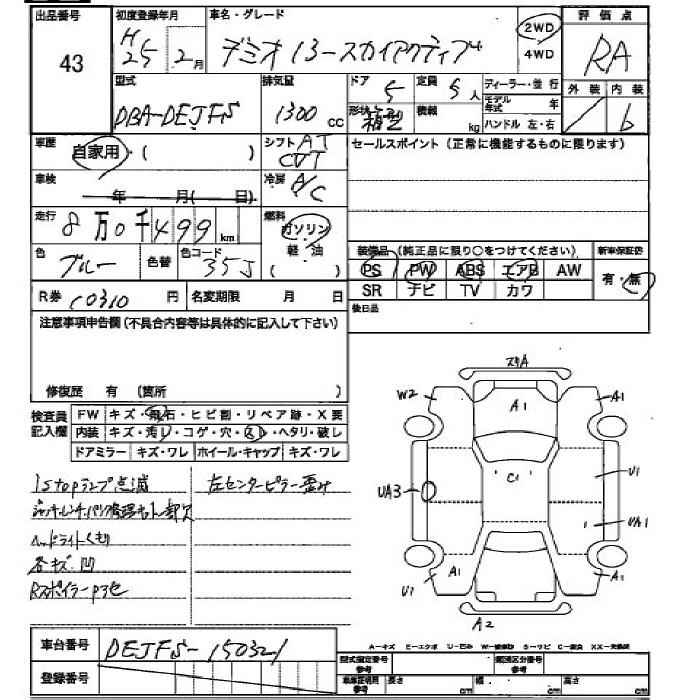 出品番号 初度登録年月 車名・グレード 2WD 評価点
43 H25 2月 デミオ 13-スカイアクティブ 4WD RA
型式 排気量 ドア 5 定員 5人 ディーラー・並行 外装 内装
DBA-DEJFS 1300cc 形状 箱型 積載 kg モデル年式 年 ハンドル 左・右 b
車歴 自家用・( ) シフト AT CVT セールスポイント(正常に機能するものに限ります)
車検 年 月( 日) 冷房 A/C
走行 8万0千499km 燃料 ガソリン・軽油
色 ブルー 色替 色コード 35J 装備品(純正品に限り○をつけてください) 新車保証書
PS PW ABS エアB AW 有・無
R券 10310円 名変期限 月 日 SR ナビ TV カワ
注意事項申告欄(不具合内容等は具体的に記入して下さい) 後日品
修復歴 有 (箇所 )
検査員記入欄 FW キズ・飛石・ヒビ割・リペア跡・X要
内装 キズ・汚レ・コゲ・穴・スレ・ヘタリ・破レ
ドアミラー キズ・ワレ ホイール・キャップ キズ・ワレ
istopランプ点滅 左センターピラー歪み
ジャッキ.レンチ.パンク修理キット欠
ヘッドライトくもり
各キズ.凹
Rスポイラー
スリA
W2 A1 A1
C1 U1
UA3 UA1
U1 A1 A1
A2
車台番号 DEJFS-150321
登録番号
A-キズ E-エクボ U-凹み
型式指定番号 参考 類別区分番号 参考
車車証明書 参考 長さ cm 幅 cm 高さ cm